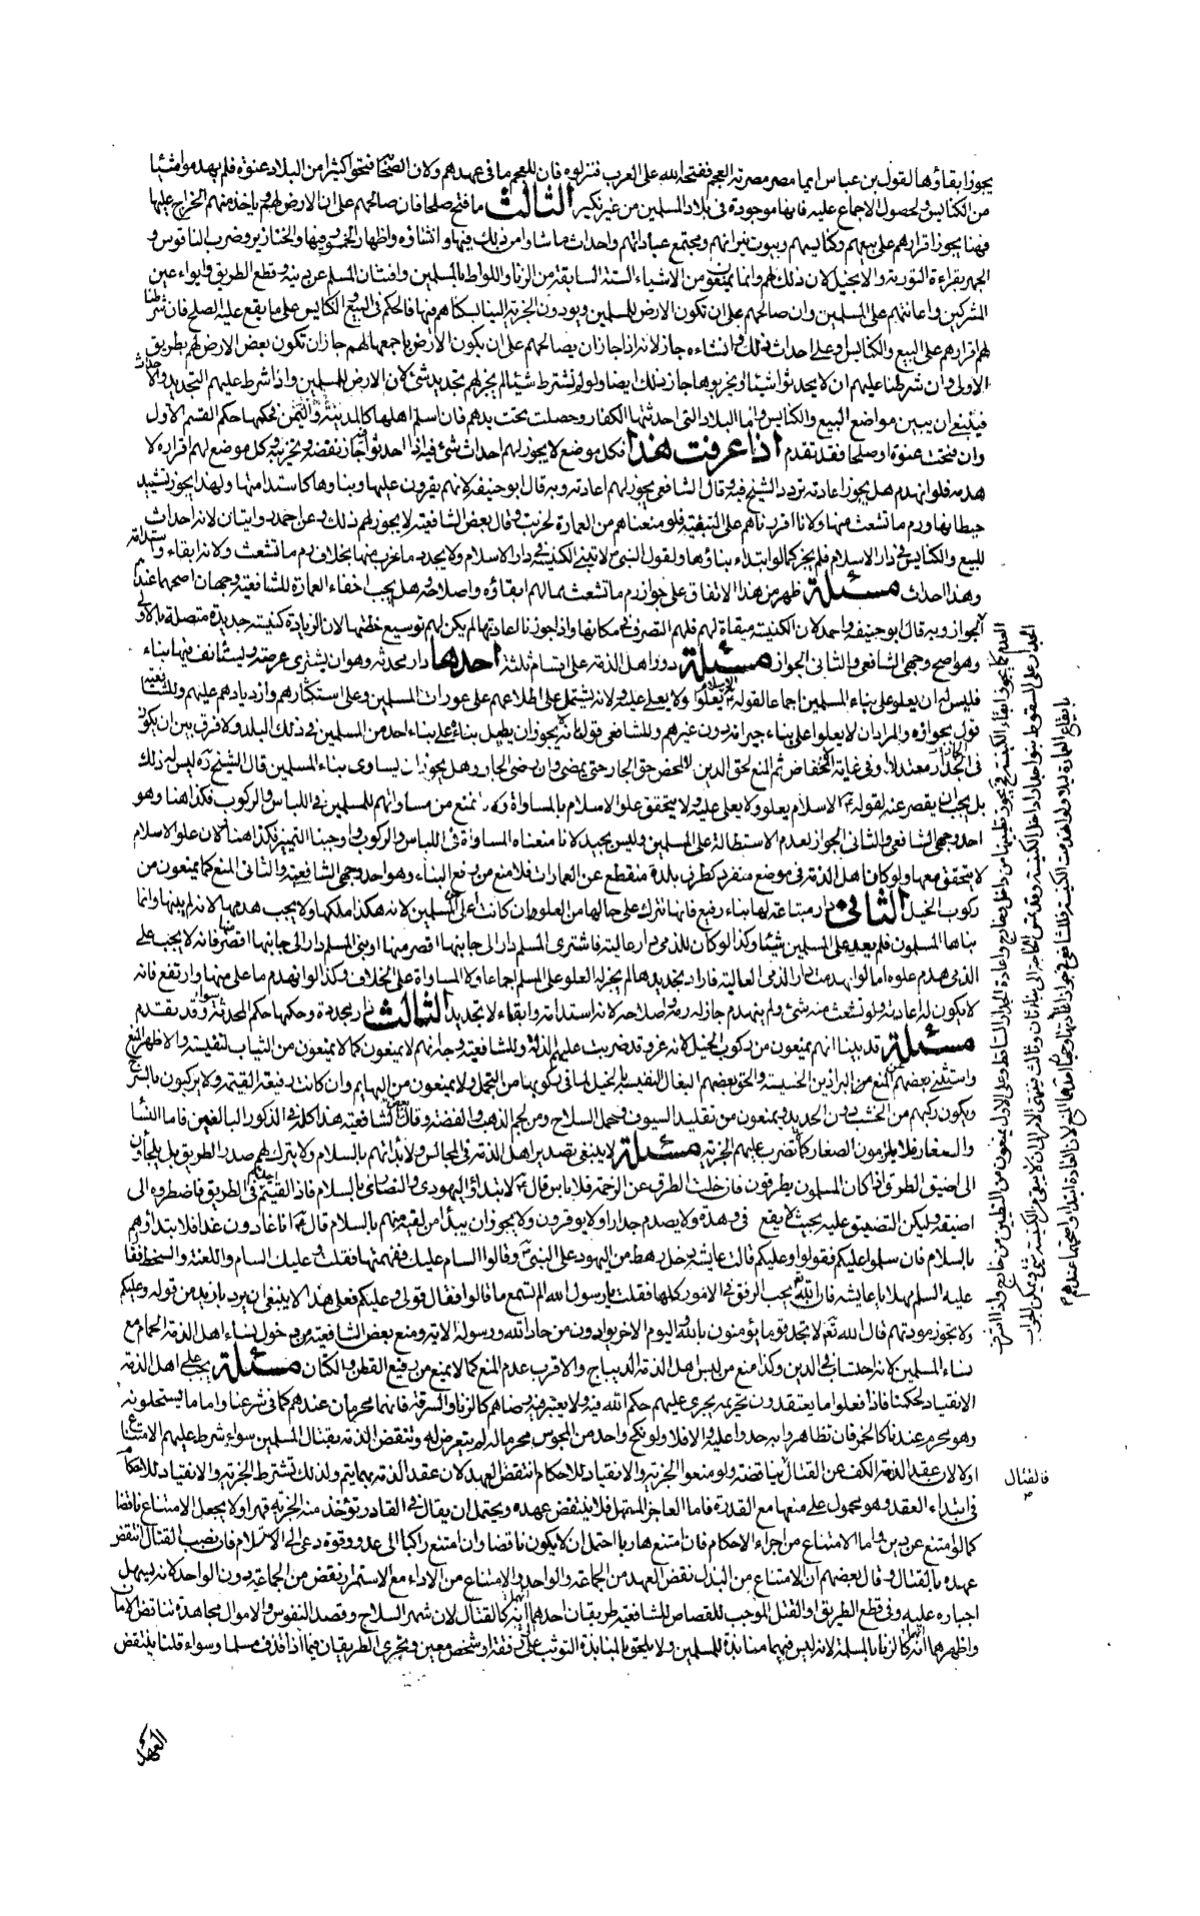 يجوز ابقاؤها لقول بن عباس ايما مصر مصرته العجم ففتحه الله على العرب فنزلوه فان للعجم ما في عهدهم ولان الصحابة فتحوا كثيرا من البلاد عنوة فلم يهدموا شيئا
من الكنايس ولحصول الاجماع عليه فانها موجودة في بلاد المسلمين من غير نكير الثالث ما فتح صلحا فان صالحهم على ان الارض لهم وياخذ منهم الخراج عليها
فهنا يجوز اقرارهم على بيعهم وكنايسهم وبيوت نيرانهم ومجتمع عباداتهم واحداث ما شاوا من ذلك فيها وانشاؤه واظهار الخمور فيها والخنازير وضرب الناقوس و
الجهر بقراءة التورية والانجيل لان ذلك لهم وانما يمنعون من الاشياء الستة السابقة من الزنا واللواط بالمسلمين وافتتان المسلم عن دينه وقطع الطريق وايواء عين
المشركين واعانتهم على المسلمين وان صالحهم على ان تكون الارض للمسلمين ويودون الجزية الينا بسكناهم فيها فالحكم في البيع والكنايس على ما يقع عليه الصلح فان شرطنا
لهم اقرارهم على البيع والكنايس وعلى احداث ذلك وانشاءه جاز لانه اذا جاز ان يصالحهم على ان يكون الارض باجمعها لهم جاز ان تكون بعض الارض لهم بطريق
الاولى وان شرطنا عليهم ان لا يحدثوا شيئا ويخربوها جاز ذلك ايضا ولو لم نشترط شيئا لم يجز لهم تجديد شئ لان الارض للمسلمين واذا شرط عليهم التجديد والاحداث
فينبغي ان يبين مواضع البيع والكنايس واما البلاد التي احدثتها الكفار وحصلت تحت يدهم فان اسلم اهلها كالمدينة واليمن فحكمها حكم القسم الاول
وان فتحت عنوة او صلحا فقد تقدم اذا عرفت هذا فكل موضع لا يجوز لهم احداث شئ فيه اذا احدثوا جاز نقضه وتخريبه وكل موضع لهم اقراره لا
هدمه فلو انهدم هل يجوز اعادته تردد الشيخ فيه وقال الشافعي يجوز لهم اعادته وبه قال ابو حنيفة لانهم يقرون عليها وبناوها كاستدامتها ولهذا يجوز تشييد
حيطانها ورم ما تشعث منها ولانا اقررناهم على التبقية فلو منعناهم من العمارة لخربت وقال بعض الشافعية لا يجوز لهم ذلك وعن احمد روايتان لانه احداث
للبيع والكنايس في دار الاسلام فلم يجز كما لو ابتداء بناؤها ولقول النبي لا تبنى الكنيسة في دار الاسلام ولا يجدد ما خرب منها بخلاف رم ما تشعث ولانه ابقاء واستدامة
وهذا احداث مسئلة ظهر من هذا الاتفاق على جواز رم ما تشعث مما لهم ابقاؤه واصلاحه وهل يجب اخفاء العمارة للشافعية وجهان اصحهما عندهم
الجواز وبه قال ابو حنيفة واحمد لان الكنيسة مبقاة لهم فلهم التصرف في مكانها واذا جوزنا اعادتها لم يكن لهم توسيع خطتها لان الزيادة كنيسة جديدة متصلة بالاولى
وهو اصح وجهي الشافعي والثاني الجواز مسئلة دور اهل الذمة على اقسام ثلثة احدها دار محدثة وهو ان يشتري عرصة ويستانف فيها بناء
فليس له ان يعلو على بناء المسلمين اجماعا لقوله الاسلام يعلو ولا يعلى عليه ولانه يشتمل على اطلاعهم على عورات المسلمين وعلى استكثارهم وازديادهم عليهم وللشافعية
قول بجوازه والمراد ان لا يعلوا على بناء جيرانه دون غيرهم وللشافعي قول انه لا يجوز ان يطيل بناءه على بناء احد من المسلمين في ذلك البلد ولا فرق بين ان يكون
بل يجب ان يقصر عنه لقوله الاسلام يعلو ولا يعلى عليه ولا يتحقق علو الاسلام بالمساواة ولانه نمنع من مساواتهم للمسلمين في اللباس والركوب فكذا هنا وهو
احد وجهي الشافعي والثاني الجواز لعدم الاستطالة على المسلمين وليس بجيد لانا منعناه المساواة في اللباس والركوب واوجبنا التمييز فكذا هنا لان علو الاسلام
لا يتحقق معها ولو كان اهل الذمة في موضع منفرد كطرف بلدة منقطع عن العمارات فلا منع من رفع البناء وهو احد وجهي الشافعية والثاني المنع كما يمنعون من
ركوب الخيل الثاني دار مبتاعة لها بناء رفيع فانها تترك على حالها من العلو وان كانت اعلى من المسلمين لانه هكذا ملكها ولا يجب هدمها لانه لم يبنها وانما
بناها المسلمون فلم يعد على المسلمين شيئا وكذا لو كان للذمي دار عالية فاشترى المسلم دار الى جانبها اقصر منها او بنى المسلم دار الى جانبها اقصر منها فانه لا يجب على
الذمي هدم علوه اما لو انهدمت دار الذمي العالية فاراد تجديدها لم يجز له العلو على المسلم اجماعا ولا المساواة على الخلاف وكذا لو انهدم ما على منها وارتفع فانه
لا يكون له اعادته ولو تشعث منه شئ ولم ينهدم جاز له رمه واصلاحه لانه استدامة وابقاء لا تجديد الثالث دار مجددة وحكمها حكم المحدثة سواء وقد تقدم
مسئلة قد بينا انهم يمنعون من ركوب الخيل لانه عز وقد ضربت عليهم الذلة وللشافعية وجه انهم لا يمنعون كما لا يمنعون من الثياب النفيسة والاظهر المنع
واستثنى بعضهم المنع من البراذين الخسيسة والحق بعضهم البغال النفيسة بالخيل لما في ركوبها من التجمل ولا يمنعون من البهايم وان كانت رفيعة القيمة ولا يركبون بالسرج
ويكون ركبهم من الخشب دون الحديد ويمنعون من تقليد السيوف وحمل السلاح ومن لجم الذهب والفضة وقال بعض الشافعية هذا كله في الذكور البالغين فاما النساء
والصغار فلا يلزمون الصغار كما لا تضرب عليهم الجزية مسئلة لا ينبغي تصدير اهل الذمة في المجالس ولا بداتهم بالسلام ولا يترك لهم صدر الطريق بل يلجأون
الى اضيق الطرق اذا كان المسلمون يطرقون فان خلت الطرق عن الزحمة فلا باس قال لا تبتدؤا اليهود والنصارى بالسلام فاذا لقيتم احدهم في الطريق فاضطروه الى
اضيقه وليكن التضييق عليه بحيث لا يقع في وهدة ولا يصدم جدارا ولا يوقرون ولا يجوز ان يبدأ من لقيه منهم بالسلام قال انا غادون غدا فلا تبتدؤهم
بالسلام فان سلموا عليكم فقولوا وعليكم قالت عايشة دخل رهط من اليهود على النبي وقالوا السام عليك ففهمتها فقلت وعليك السام واللعنة والسخط فقال
عليه السلم مهلا يا عايشة فان الله يحب الرفق في الامور كلها فقلت يا رسول الله الم تسمع ما قالوا فقال قولي وعليكم فعلى هذا لا ينبغي ان يرد بازيد من قوله وعليكم
ولا تجوز مودتهم قال الله تعالى لا تجد قوما يؤمنون بالله واليوم الاخر يوادون من حاد الله ورسوله الاية ومنع بعض الشافعية من دخول نساء اهل الذمة الحمام مع
نساء المسلمين لانه اجنبيات في الدين وكذا منع من لبس اهل الذمة الديباج والاقرب عدم المنع كما لا يمنع من رفيع القطن والكتان مسئلة يجب على اهل الذمة
الانقياد لحكمنا فاذا فعلوا ما يعتقدون تحريمه يجري عليهم حكم الله فيه ولا يعتبر فيه رضاهم كالزنا والسرقة فانهما محرمان عندهم كما في شرعنا واما ما يستحلونه
وهو محرم عندنا كالخمر فان تظاهروا به حدوا عليه والا فلا ولو نكح واحد من المجوس محرما له لم يتعرض له وتنقض الذمة بقتال المسلمين سواء شرط عليهم الامتناع
اولا لان عقد الذمة الكف عن القتال يناقضه ولو منعوا الجزية والانقياد للاحكام انتقض العهد لان عقد الذمة بهما يتم ولذلك تشترط الجزية والانقياد للاحكام
في ابتداء العقد وهو محمول على منعها مع القدرة فاما العاجز الممتهل فلا ينتقض عهده ويحتمل ان يقال في القادر تؤخذ منه الجزية قهرا ولا يجعل الامتناع ناقضا
كما لو امتنع عن دين واما الامتناع من اجراء الاحكام فان امتنع هاربا احتمل ان لا يكون ناقضا وان امتنع راكبا الى عدو وقوة دعي الى الاستسلام فان نصب القتال انتقض
عهده بالقتال وقال بعضهم ان الامتناع من البذل نقض العهد من الجماعة والواحد والامتناع من الاداء مع الاستمرار نقض من الجماعة دون الواحد لانه يسهل
اجباره عليه وفي قطع الطريق او القتل الموجب للقصاص للشافعية طريقان احدهما انه كالقتال لان شهر السلاح وقصد النفوس والاموال مجاهدة تناقض الامان
واظهرهما انه كالزنا بالمسلمة لانه ليس فيهما منابذة للمسلمين ولا يلحق بالمنابذة التوثب على رفقة او شخص معين ويجري الطريقان فيما اذا قذف مسلما وسواء قلنا ينتقض
فالقتال
العهد